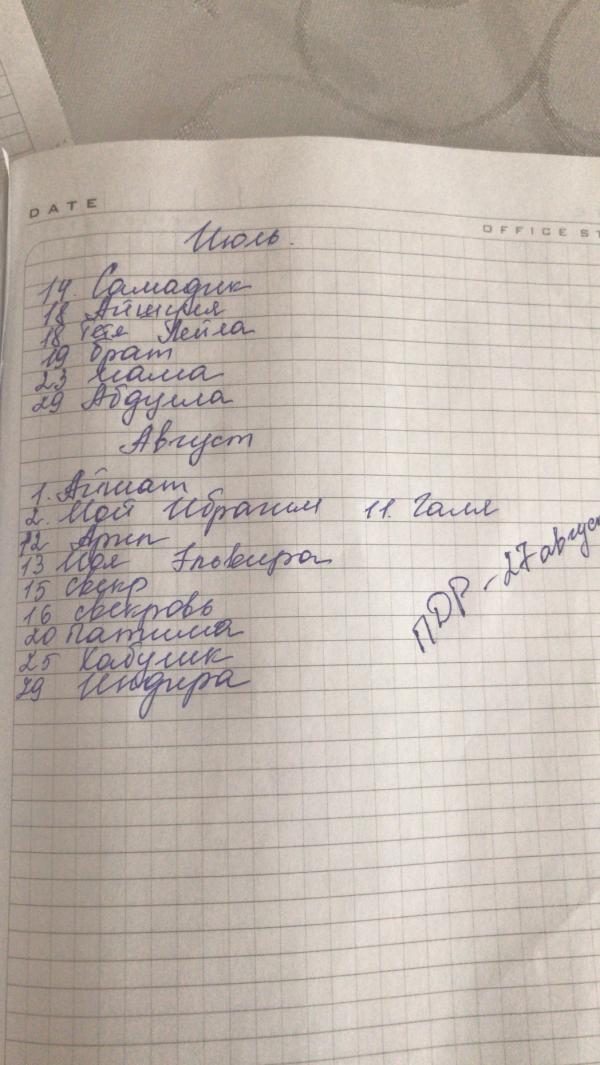 DATE
OFFICE ST
Июль.
14. Самадик
18 Айшуня
18 тётя Лейла
19 брат
23 мама
29 Абдулла
Август
1. Айшат
2. Мой Ибрагим 11. Галя
12 Арип
13 Моя Эльвира
15 свекр
16 свекровь
20 Патима
25 Хабулик
29 Индира
ПДР - 27 август